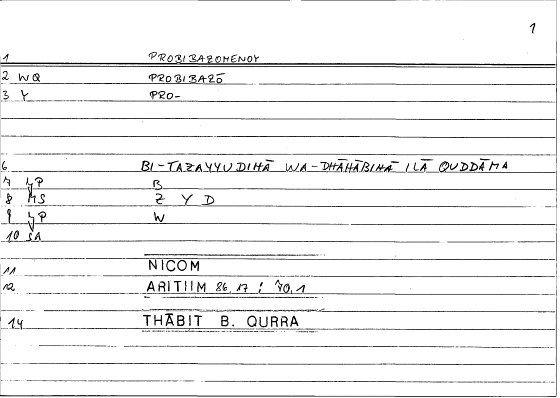 1
1 PROBIBAZOMENOY
2 WQ PROBIBAZŌ
3 Y PRO-
6 BI-TAZAYYUDIHĀ WA-DHĀHĀBIHĀ ILĀ QUDDĀMA
7 LP B
8 MS Z Y D
9 LP W
10 SA
11 NICOM
12 ARITIIM 86,17 : 70,1
14 THĀBIT B. QURRA